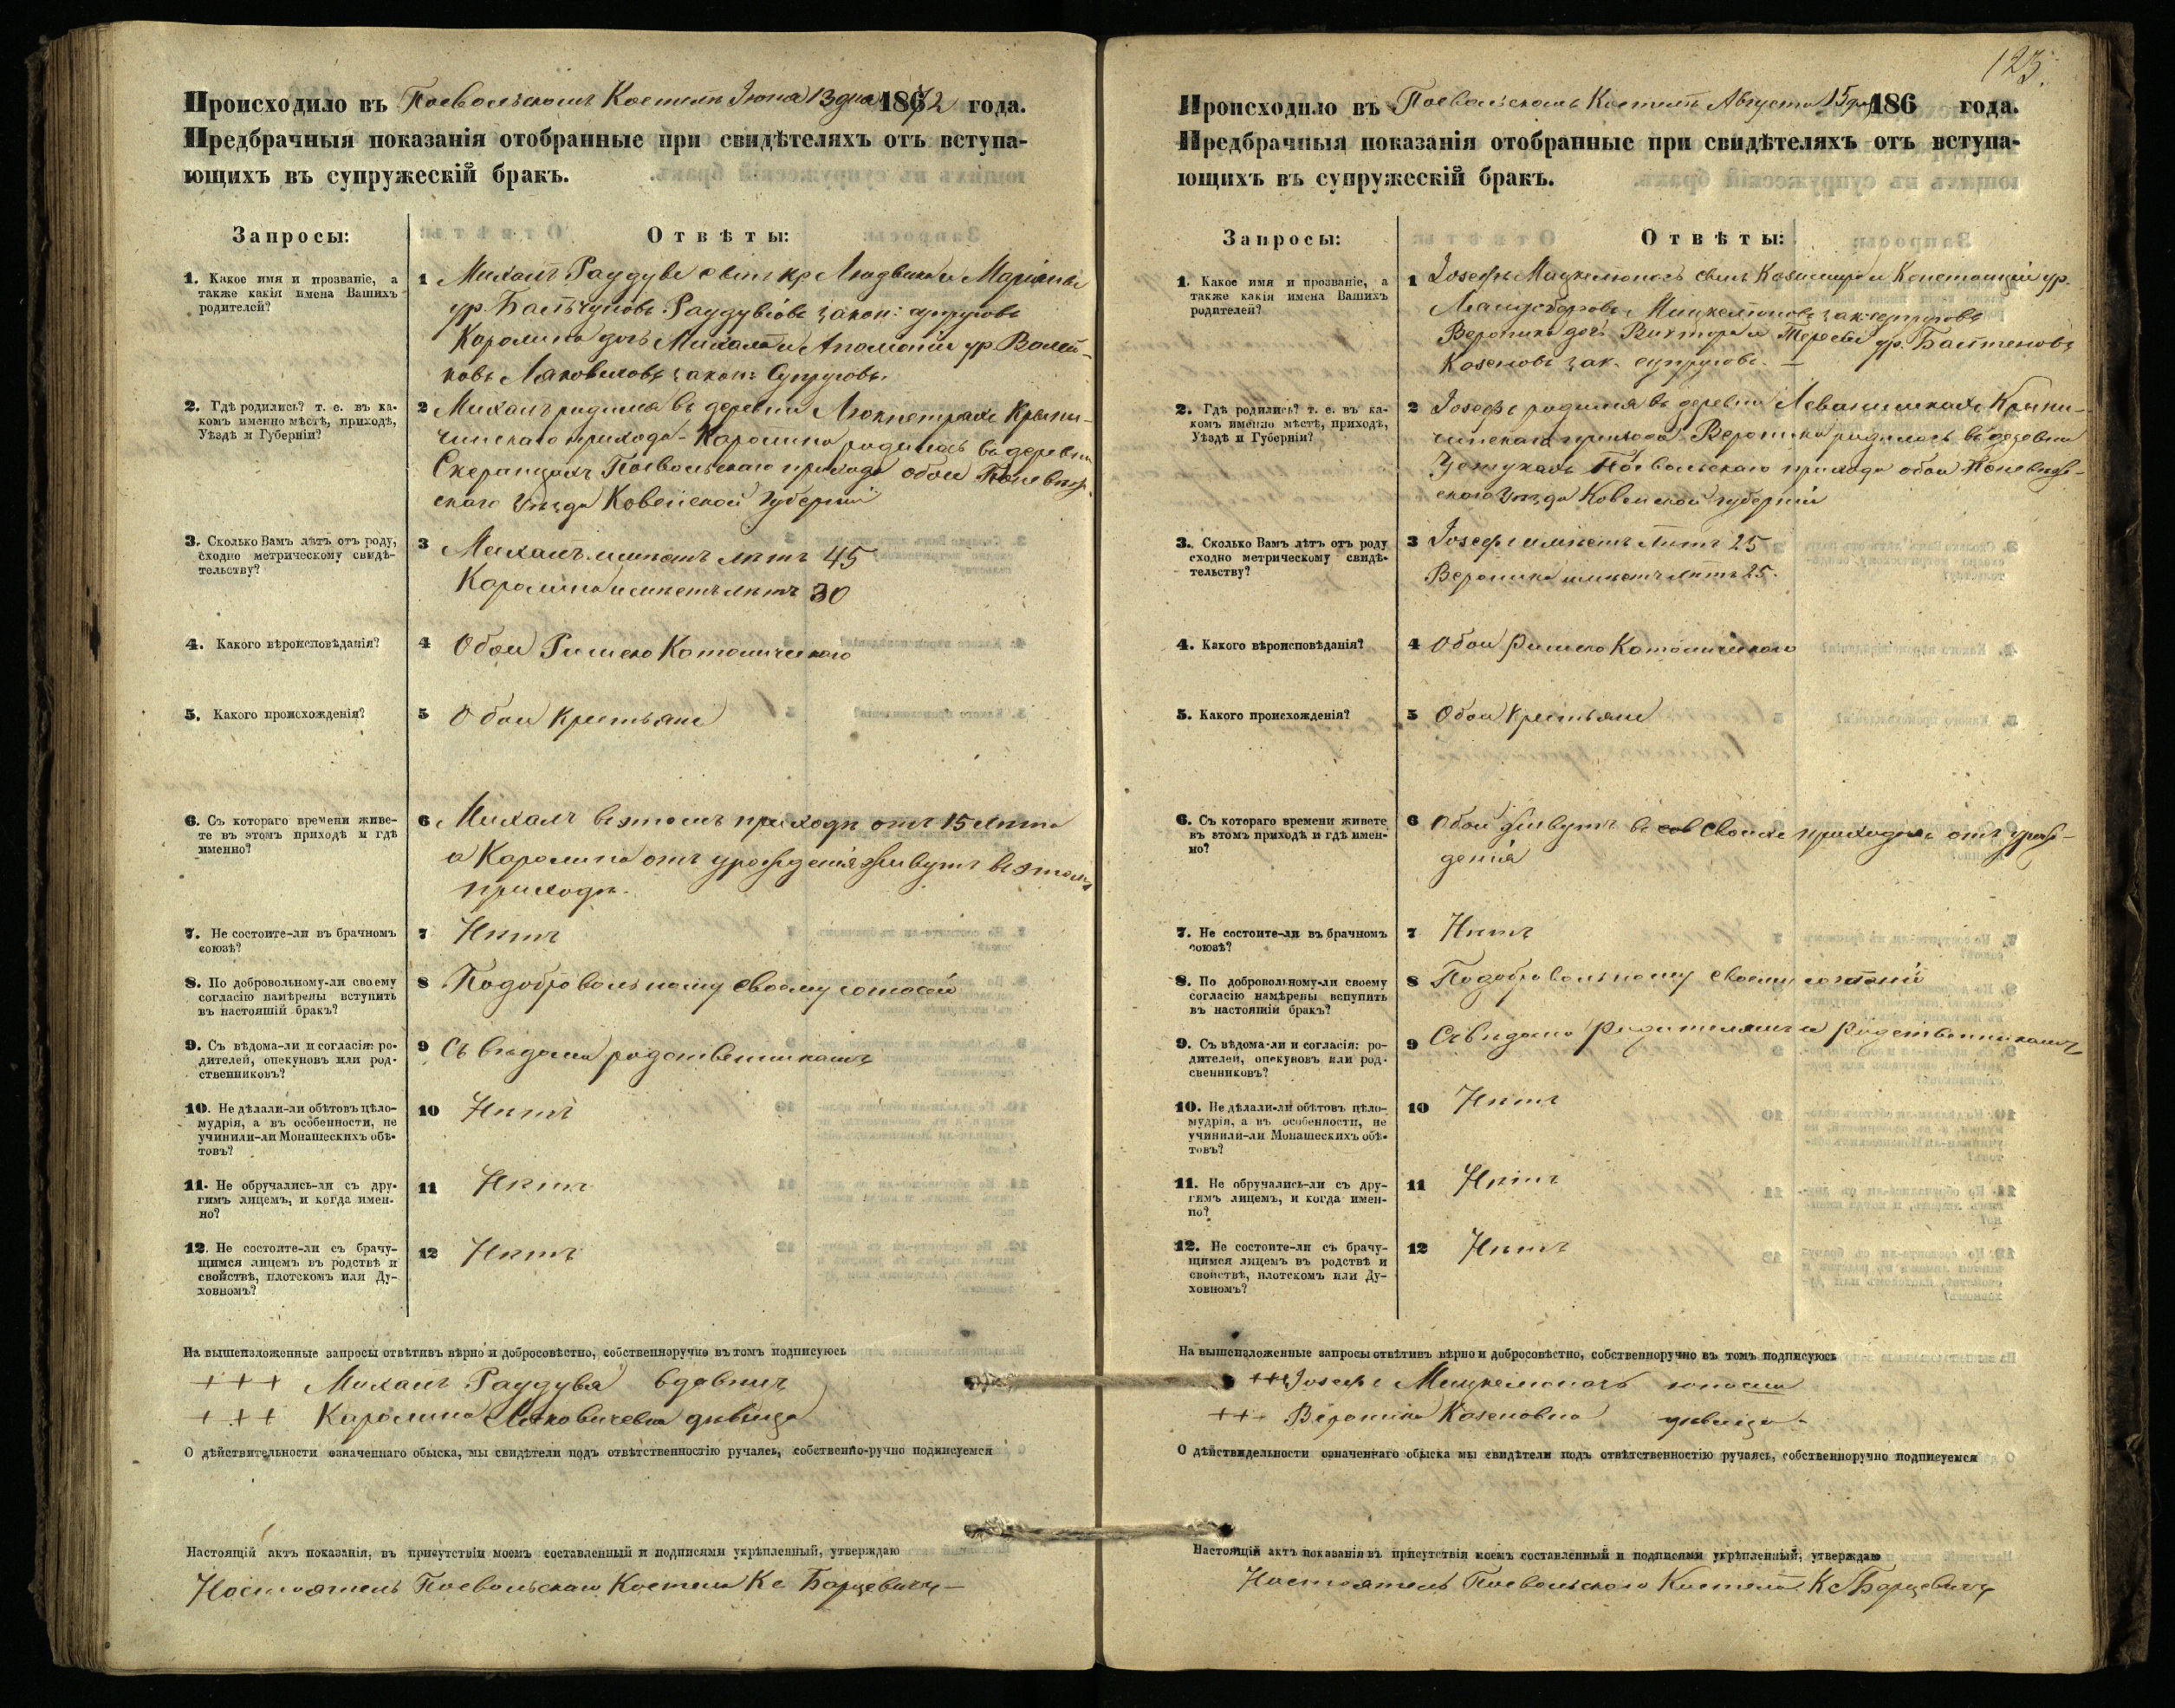 Происходило въ Поевольскомъ Костелѣ Іюня 13 дня 1872 года.
Предбрачныя показанія отобранные при свидѣтеляхъ отъ вступа-
ющихъ въ супружескій бракъ.
Запросы: Отвѣты:
1. Какое имя и прозваніе, а
также какія имена Вашихъ
родителей?
1 Михалъ Раудуве сынъ Людвика и Маріанны
ур. Раудувіовъ закон: супруговъ
Каролина дочь Михала и Аполоніи ур.
закон: Супруговъ.
2. Гдѣ родились? т. е. въ ка-
комъ именно мѣстѣ, приходѣ,
Уѣздѣ и Губерніи?
2 Михалъ родился въ деревни Крыни-
чинскаго прихода - Каролина родилась въ деревни
Поевольскаго прихода обои Поневѣж-
скаго Уѣзда Ковенской Губерніи
3. Сколько Вамъ лѣтъ отъ роду,
сходно метрическому свидѣ-
тельству?
3 Михалъ имѣетъ лѣтъ 45
Каролина имѣетъ лѣтъ 30
4. Какого вѣроисповѣданія?
4 Обои Римско Католическаго
5. Какого происхожденія?
5 Обои Крестьяне
6. Съ котораго времени живе-
те въ этомъ приходѣ и гдѣ
именно?
6 Михалъ въ этомъ приходѣ отъ 15 лѣтъ
а Каролина отъ урожденія живутъ въ этомъ
приходѣ.
7. Не состоите-ли въ брачномъ
союзѣ?
7 Нѣтъ
8. По добровольному-ли своему
согласію намѣрены вступить
въ настоящій бракъ?
8 Подобровольному своему согласію
9. Съ вѣдома-ли и согласія: ро-
дителей, опекуновъ или род-
ственниковъ?
9 Съ вѣдома родственникамъ
10. Не дѣлали-ли обѣтовъ цѣло-
мудрія, а въ особенности, не
учинили-ли Монашескихъ обѣ-
товъ?
10 Нѣтъ
11. Не обручались-ли съ дру-
гимъ лицемъ, и когда имен-
но?
11 Нѣтъ
12. Не состоите-ли съ брачу-
щимся лицемъ въ родствѣ и
свойствѣ, плотскомъ или Ду-
ховномъ?
12 Нѣтъ
На вышеизложенные запросы отвѣтивъ вѣрно и добросовѣстно, собственноручно въ томъ подписуюсь
+++ Михалъ Раудува вдовецъ
+++ Каролина Ляковичевна дѣвица
О дѣйствительности означеннаго обыска, мы свидѣтели подъ отвѣтственностію ручаясь, собственно-ручно подписуемся
Настоящій актъ показанія, въ присутствіи моемъ составленный и подписями укрѣпленный, утверждаю
Настоятель Поевольскаго Костела Кс Барцевичъ
123.
Происходило въ Поевольскомъ Костелѣ Августа 15 дня 186 года.
Предбрачныя показанія отобранные при свидѣтеляхъ отъ вступа-
ющихъ въ супружескій бракъ.
Запросы: Отвѣты:
1. Какое имя и прозваніе, а
также какія имена Вашихъ
родителей?
1 Іосефъ Мицкелюнасъ сынъ Казимира и Констанціи ур.
зак. супруговъ
Вероника дочь Виктора и Тересы ур.
Казеновъ зак. супруговъ. —
2. Гдѣ родились? т. е. въ ка-
комъ именно мѣстѣ, приходѣ,
Уѣздѣ и Губерніи?
2 Іосефъ родился въ деревни Крыни-
чинскаго прихода Вероника родилась въ деревни
Поевольскаго прихода обои Поневѣж-
скаго Уѣзда Ковенской губерніи
3. Сколько Вамъ лѣтъ отъ роду
сходно метрическому свидѣ-
тельству?
3 Іосефъ имѣетъ лѣтъ 25
Вероника имѣетъ лѣтъ 25.
4. Какого вѣроисповѣданія?
4 Обои Римско Католическаго
5. Какого происхожденія?
5 Обои Крестьяне
6. Съ котораго времени живете
въ этомъ приходѣ и гдѣ имен-
но?
6 Обои живутъ въ своихъ приходахъ отъ урож-
денія
7. Не состоите-ли въ брачномъ
союзѣ?
7 Нѣтъ
8. По добровольному-ли своему
согласію намѣрены вспупить
въ настоящій бракъ?
8 Подобровольному своему согласію
9. Съ вѣдома-ли и согласія: ро-
дителей, опекуновъ или род-
свенниковъ?
9 Съ вѣдома Родителямъ и Родственникамъ
10. Не дѣлали-ли обѣтовъ цѣло-
мудрія, а въ особенности, не
учинили-ли Монашескихъ обѣ-
товъ?
10 Нѣтъ
11. Не обручались-ли съ дру-
гимъ лицемъ, и когда имен-
но?
11 Нѣтъ
12. Не состоите-ли съ брачу-
щимся лицемъ въ родствѣ и
свойствѣ, плотскомъ или Ду-
ховномъ?
12 Нѣтъ
На вышеизложенные запросы отвѣтивъ вѣрно и добросовѣстно, собственноручно въ томъ подписуюсь
+++ Іосефъ Мицкелюнасъ юноша
++ Вероника Казеновна дѣвица
О дѣйствидельности означеннаго обыска мы свидѣтели подъ отвѣтственностію ручаясь, собственноручно подписуемся
Настоящій актъ показанія въ присутствіи моемъ составленный и подписями укрѣпленный, утверждаю
Настоятель Поевольскаго Костела Кс Барцевичъ